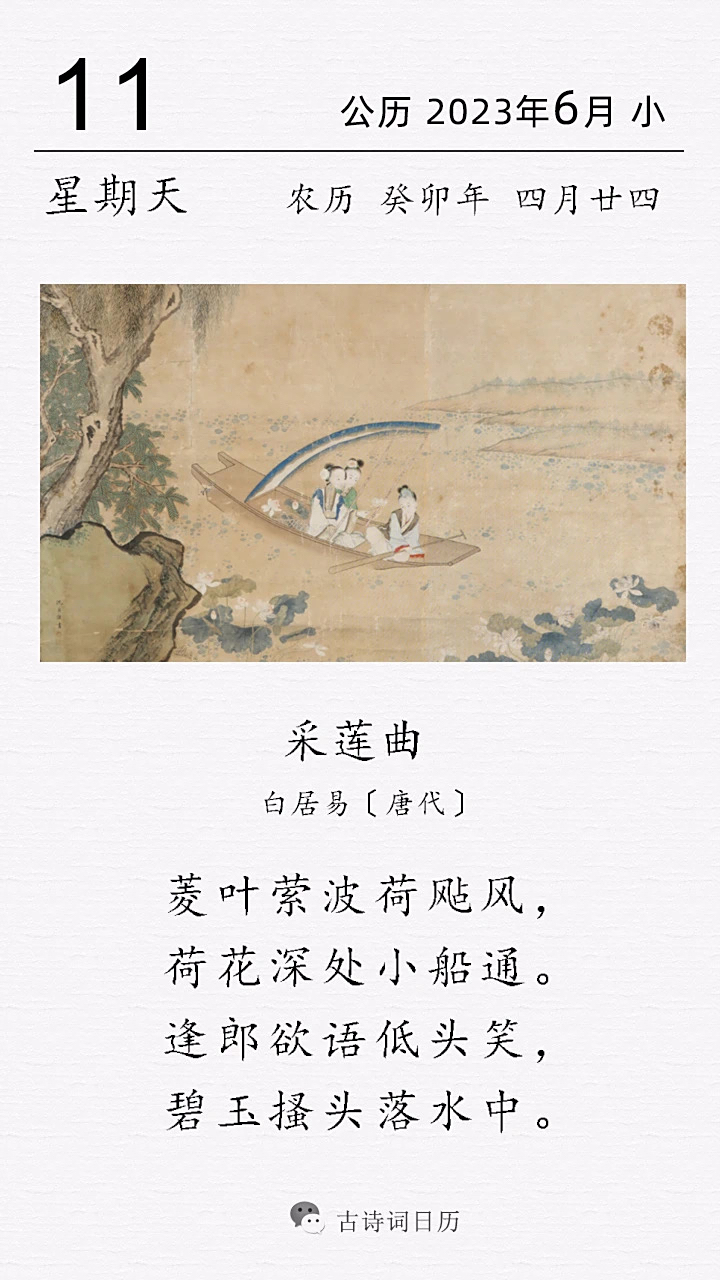 11
公历 2023年6月 小
星期天
农历 癸卯年 四月廿四
采莲曲
白居易〔唐代〕
菱叶萦波荷飐风，
荷花深处小船通。
逢郎欲语低头笑，
碧玉搔头落水中。
古诗词日历